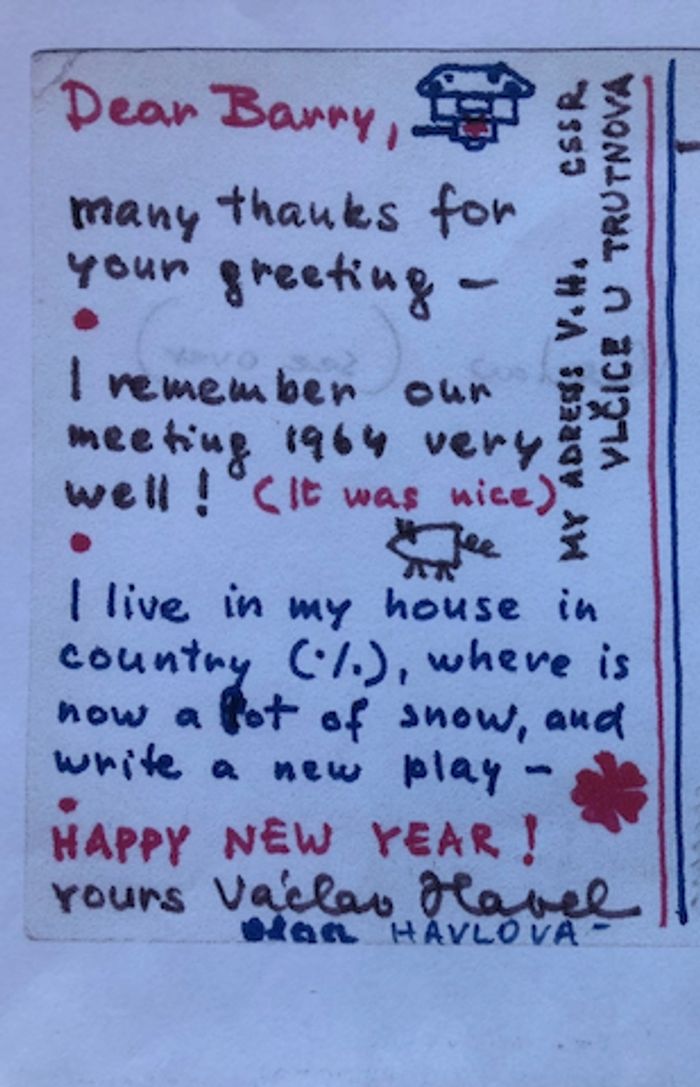 Dear Barry,
many thanks for
your greeting –
I remember our
meeting 1964 very
well! (It was nice)
I live in my house in
country (·/.), where is
now a lot of snow, and
write a new play –
HAPPY NEW YEAR!
Yours Václav Havel
HAVLOVA –
MY ADRESS V.H. CSSR
VLČICE U TRUTNOVA
(see over)